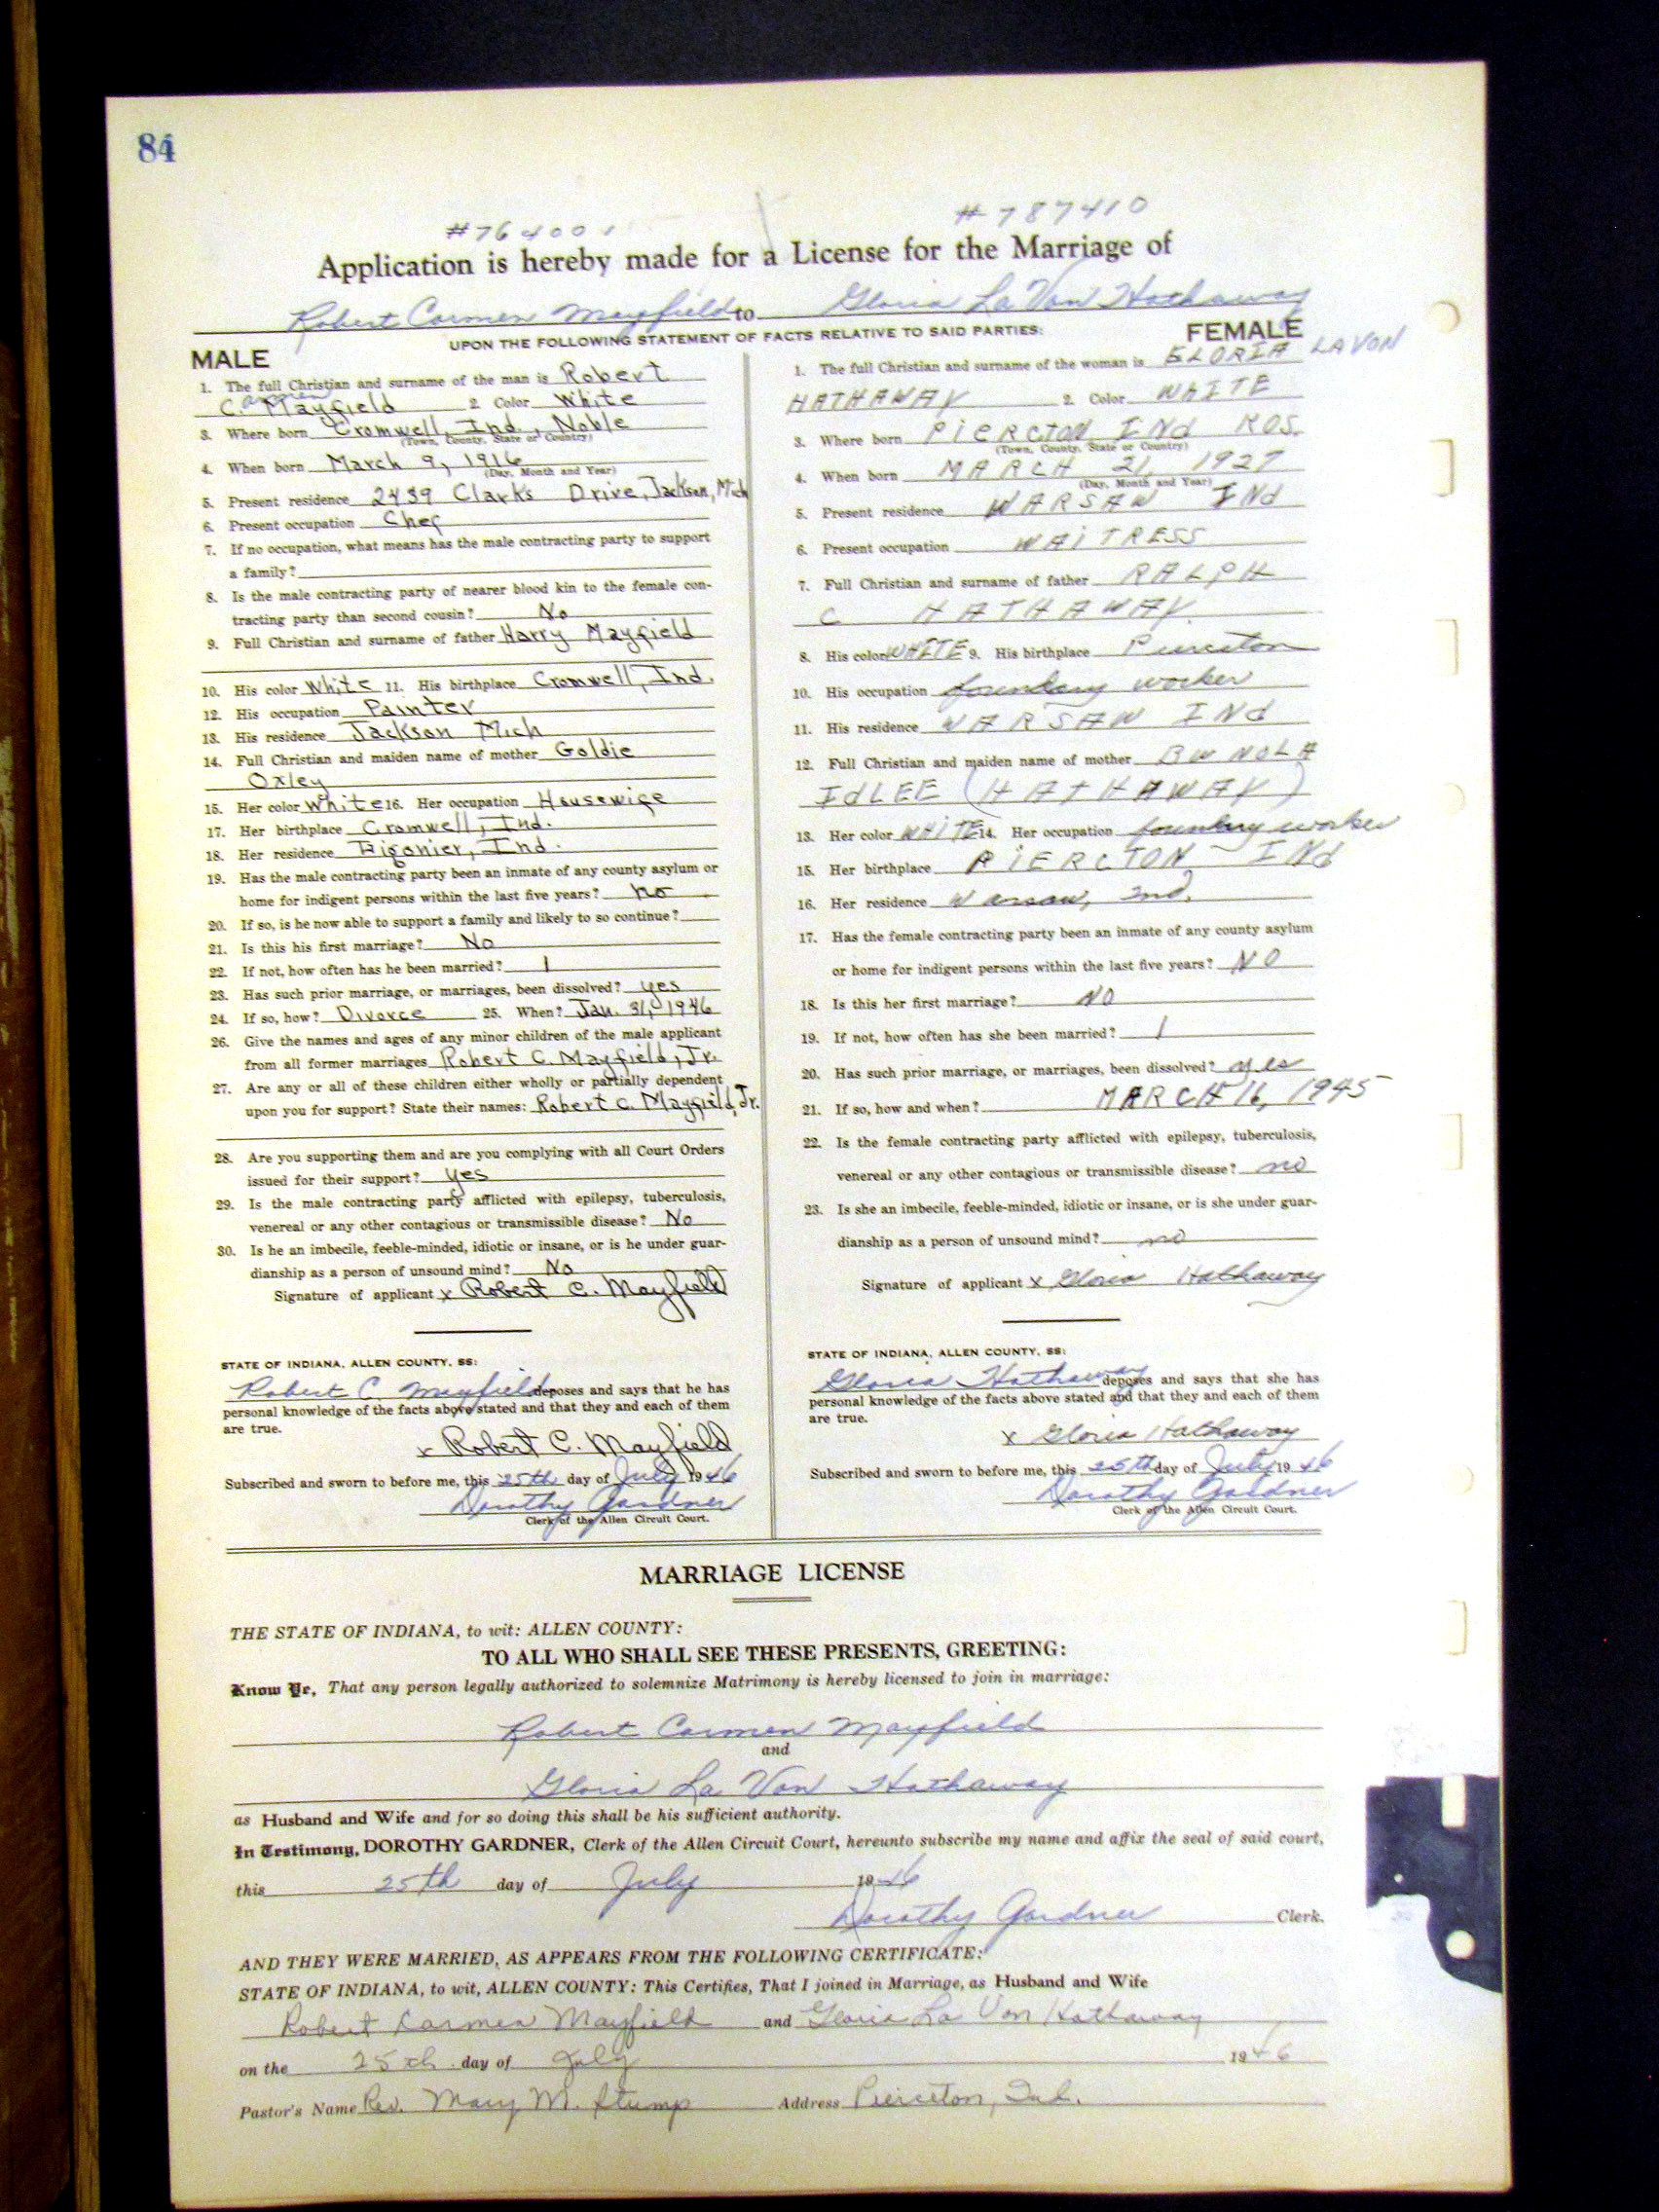 84
#764001 #787410
Application is hereby made for a License for the Marriage of
Robert Carmen Mayfield to Gloria La Von Hathaway
UPON THE FOLLOWING STATEMENT OF FACTS RELATIVE TO SAID PARTIES:
MALE
1. The full Christian and surname of the man is Robert
C. armen Mayfield 2. Color White
3. Where born Cromwell, Ind., Noble
(Town, County, State or Country)
4. When born March 9, 1916
(Day, Month and Year)
5. Present residence 2439 Clarks Drive, Jackson, Mich
6. Present occupation Chef
7. If no occupation, what means has the male contracting party to support
a family?
8. Is the male contracting party of nearer blood kin to the female con-
tracting party than second cousin? No
9. Full Christian and surname of father Harry Mayfield
10. His color White 11. His birthplace Cromwell, Ind.
12. His occupation Painter
13. His residence Jackson Mich
14. Full Christian and maiden name of mother Goldie
Oxley
15. Her color White 16. Her occupation Housewife
17. Her birthplace Cromwell, Ind.
18. Her residence Ligonier, Ind.
19. Has the male contracting party been an inmate of any county asylum or
home for indigent persons within the last five years? no
20. If so, is he now able to support a family and likely to so continue?
21. Is this his first marriage? No
22. If not, how often has he been married? 1
23. Has such prior marriage, or marriages, been dissolved? yes
24. If so, how? Divorce 25. When? Jan. 31, 1946
26. Give the names and ages of any minor children of the male applicant
from all former marriages Robert C. Mayfield, Jr.
27. Are any or all of these children either wholly or partially dependent
upon you for support? State their names: Robert C. Mayfield, Jr.
28. Are you supporting them and are you complying with all Court Orders
issued for their support? yes
29. Is the male contracting party afflicted with epilepsy, tuberculosis,
venereal or any other contagious or transmissible disease? No
30. Is he an imbecile, feeble-minded, idiotic or insane, or is he under guar-
dianship as a person of unsound mind? No
Signature of applicant x Robert C. Mayfield
STATE OF INDIANA, ALLEN COUNTY, SS:
Robert C. Mayfield deposes and says that he has
personal knowledge of the facts above stated and that they and each of them
are true.
x Robert C. Mayfield
Subscribed and sworn to before me, this 25th day of July 1946
Dorothy Gardner
Clerk of the Allen Circuit Court.
FEMALE
1. The full Christian and surname of the woman is GLORIA LAVON
HATHAWAY 2. Color WHITE
3. Where born PIERCTON INd KOS.
(Town, County, State or Country)
4. When born MARCH 21, 1927
(Day, Month and Year)
5. Present residence WARSAW INd
6. Present occupation WAITRESS
7. Full Christian and surname of father RALPH
C HATHAWAY.
8. His color WHITE 9. His birthplace Pierceton
10. His occupation foundary worker
11. His residence WARSAW INd
12. Full Christian and maiden name of mother
IdLEE (HATHAWAY)
13. Her color WHITE 14. Her occupation foundary worker
15. Her birthplace PIERCTON INd
16. Her residence Warsaw, Ind.
17. Has the female contracting party been an inmate of any county asylum
or home for indigent persons within the last five years? NO
18. Is this her first marriage? NO
19. If not, how often has she been married? 1
20. Has such prior marriage, or marriages, been dissolved? yes
21. If so, how and when? MARCH 16, 1945
22. Is the female contracting party afflicted with epilepsy, tuberculosis,
venereal or any other contagious or transmissible disease? no
23. Is she an imbecile, feeble-minded, idiotic or insane, or is she under guar-
dianship as a person of unsound mind? no
Signature of applicant x Gloria Hathaway
STATE OF INDIANA, ALLEN COUNTY, SS:
Gloria Hathaway deposes and says that she has
personal knowledge of the facts above stated and that they and each of them
are true.
x Gloria Hathaway
Subscribed and sworn to before me, this 25th day of July 1946
Dorothy Gardner
Clerk of the Allen Circuit Court.
MARRIAGE LICENSE
THE STATE OF INDIANA, to wit: ALLEN COUNTY:
TO ALL WHO SHALL SEE THESE PRESENTS, GREETING:
Know Ye, That any person legally authorized to solemnize Matrimony is hereby licensed to join in marriage:
Robert Carmen Mayfield
and
Gloria La Von Hathaway
as Husband and Wife and for so doing this shall be his sufficient authority.
In Testimony, DOROTHY GARDNER, Clerk of the Allen Circuit Court, hereunto subscribe my name and affix the seal of said court,
this 25th day of July 1946
Dorothy Gardner Clerk.
AND THEY WERE MARRIED, AS APPEARS FROM THE FOLLOWING CERTIFICATE:
STATE OF INDIANA, to wit, ALLEN COUNTY: This Certifies, That I joined in Marriage, as Husband and Wife
Robert Karmen Mayfield and Gloria La Von Hathaway
on the 25th day of July 1946
Pastor's Name Rev. Mary M. Stump Address Pierceton, Ind.